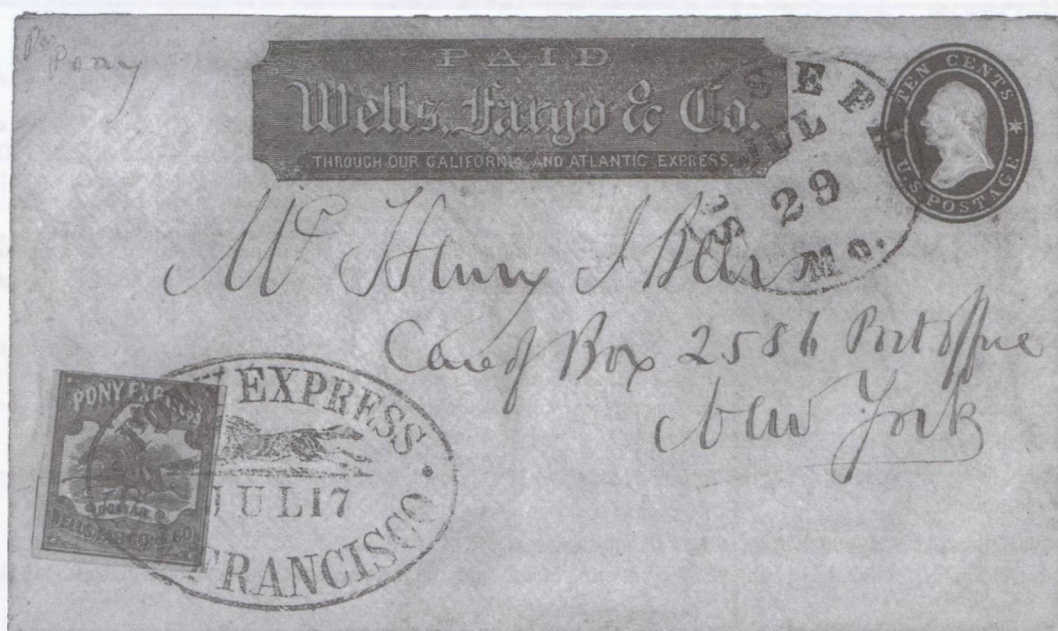 Per
Pony
PAID
Wells, Fargo & Co.
THROUGH OUR CALIFORNIA AND ATLANTIC EXPRESS.
TEN CENTS
U.S. POSTAGE
ST JOSEPH
JUL
29
Mo.
Mr Henry I
Care of Box 2586 Post office
New York
PONY EXPRESS
DOLLAR
WELLS FARGO & CO
PONY EXPRESS
JUL 17
FRANCISCO